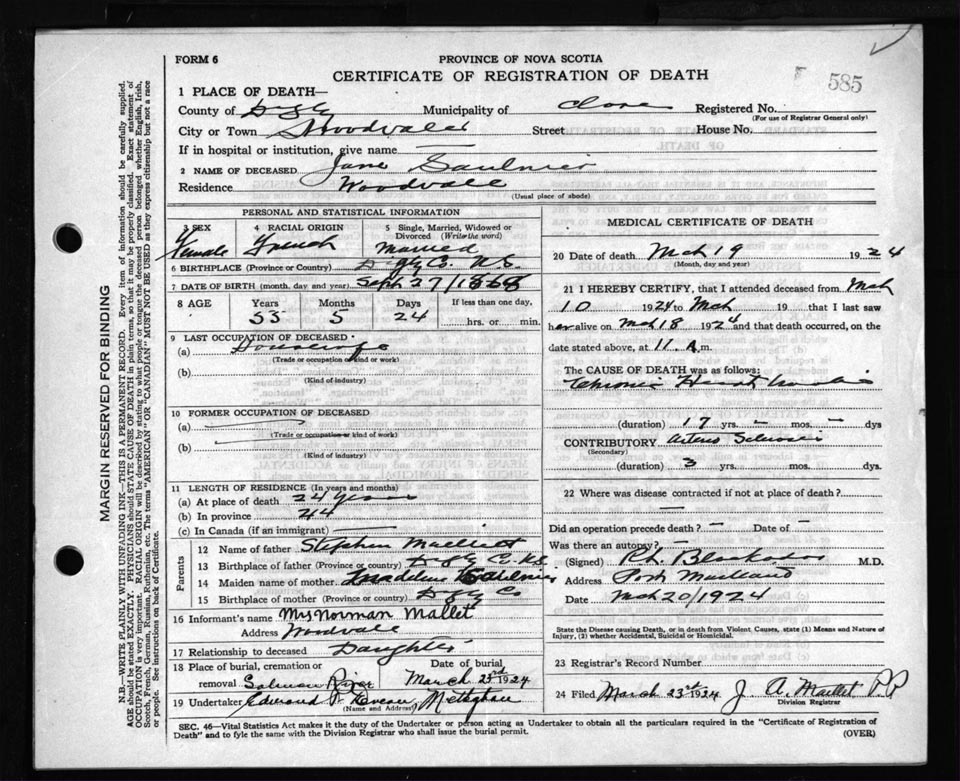 585
FORM 6
PROVINCE OF NOVA SCOTIA
CERTIFICATE OF REGISTRATION OF DEATH
1 PLACE OF DEATH—
County of Digby Municipality of Clare Registered No.
(For use of Registrar General only)
City or Town Woodvale Street House No.
If in hospital or institution, give name —
2 NAME OF DECEASED Jane Saulnier
Residence Woodvale
(Usual place of abode)
PERSONAL AND STATISTICAL INFORMATION
3 SEX 4 RACIAL ORIGIN 5 Single, Married, Widowed or Divorced (Write the word)
Female French Married
6 BIRTHPLACE (Province or Country) Digby Co. N.S.
7 DATE OF BIRTH (month, day and year) Sept 27/1868
8 AGE Years Months Days If less than one day,
53 5 24 hrs. or min.
9 LAST OCCUPATION OF DECEASED
(a) Housewife
(Trade or occupation or kind or work)
(b)
(Kind of industry)
10 FORMER OCCUPATION OF DECEASED
(a)
(Trade or occupation or kind or work)
(b)
(Kind of industry)
11 LENGTH OF RESIDENCE (In years and months)
(a) At place of death 24 years
(b) In province 44
(c) In Canada (if an immigrant) —
Parents
12 Name of father Stephen
13 Birthplace of father (Province or Country) Digby Co. N.S.
14 Maiden name of mother
15 Birthplace of mother (Province or Country) Digby Co
16 Informant's name Mrs Norman Mallet
Address Woodvale
17 Relationship to deceased Daughter
18 Place of burial, cremation or removal Salmon River Date of burial March 23rd 1924
19 Undertaker Edmond P. Meteghan
(Name and Address)
MEDICAL CERTIFICATE OF DEATH
20 Date of death Mch 19 1924
(Month, day and year)
21 I HEREBY CERTIFY, that I attended deceased from Mch
10 1924 to Mch 19 that I last saw
her alive on Mch 18 1924 and that death occurred, on the
date stated above, at 11 A.m.
The CAUSE OF DEATH was as follows:
Chronic Heart
(duration) 17 yrs. — mos. — dys
CONTRIBUTORY
(Secondary)
(duration) 3 yrs. mos. dys.
22 Where was disease contracted if not at place of death?
—
Did an operation precede death? — Date of —
Was there an autopsy? —
(Signed) M.D.
Address Port Maitland
Date Mch 20/1924
State the Disease causing Death, or in death from Violent Causes, state (1) Means and Nature of Injury, (2) whether Accidental, Suicidal or Homicidal.
23 Registrar's Record Number
24 Filed March 23rd 1924 J. A. Maillet P.P.
Division Registrar
SEC. 46—Vital Statistics Act makes it the duty of the Undertaker or person acting as Undertaker to obtain all the particulars required in the "Certificate of Registration of
Death" and to fyle the same with the Division Registrar who shall issue the burial permit. (OVER)
MARGIN RESERVED FOR BINDING
N.B.—WRITE PLAINLY WITH UNFADING INK—THIS IS A PERMANENT RECORD. Every item of information should be carefully supplied.
AGE should be stated EXACTLY. PHYSICIANS should STATE CAUSE OF DEATH in plain terms, so that it may be properly classified. Exact statement of
OCCUPATION is very important. RACIAL ORIGIN will be described by stating to what people or tongue the deceased person belonged whether English, Irish,
Scotch, French, German, Russian, Ruthenian, etc. The terms "AMERICAN" or "CANADIAN" MUST NOT BE USED as they express citizenship but not a race
or people. See instructions on back of Certificate.